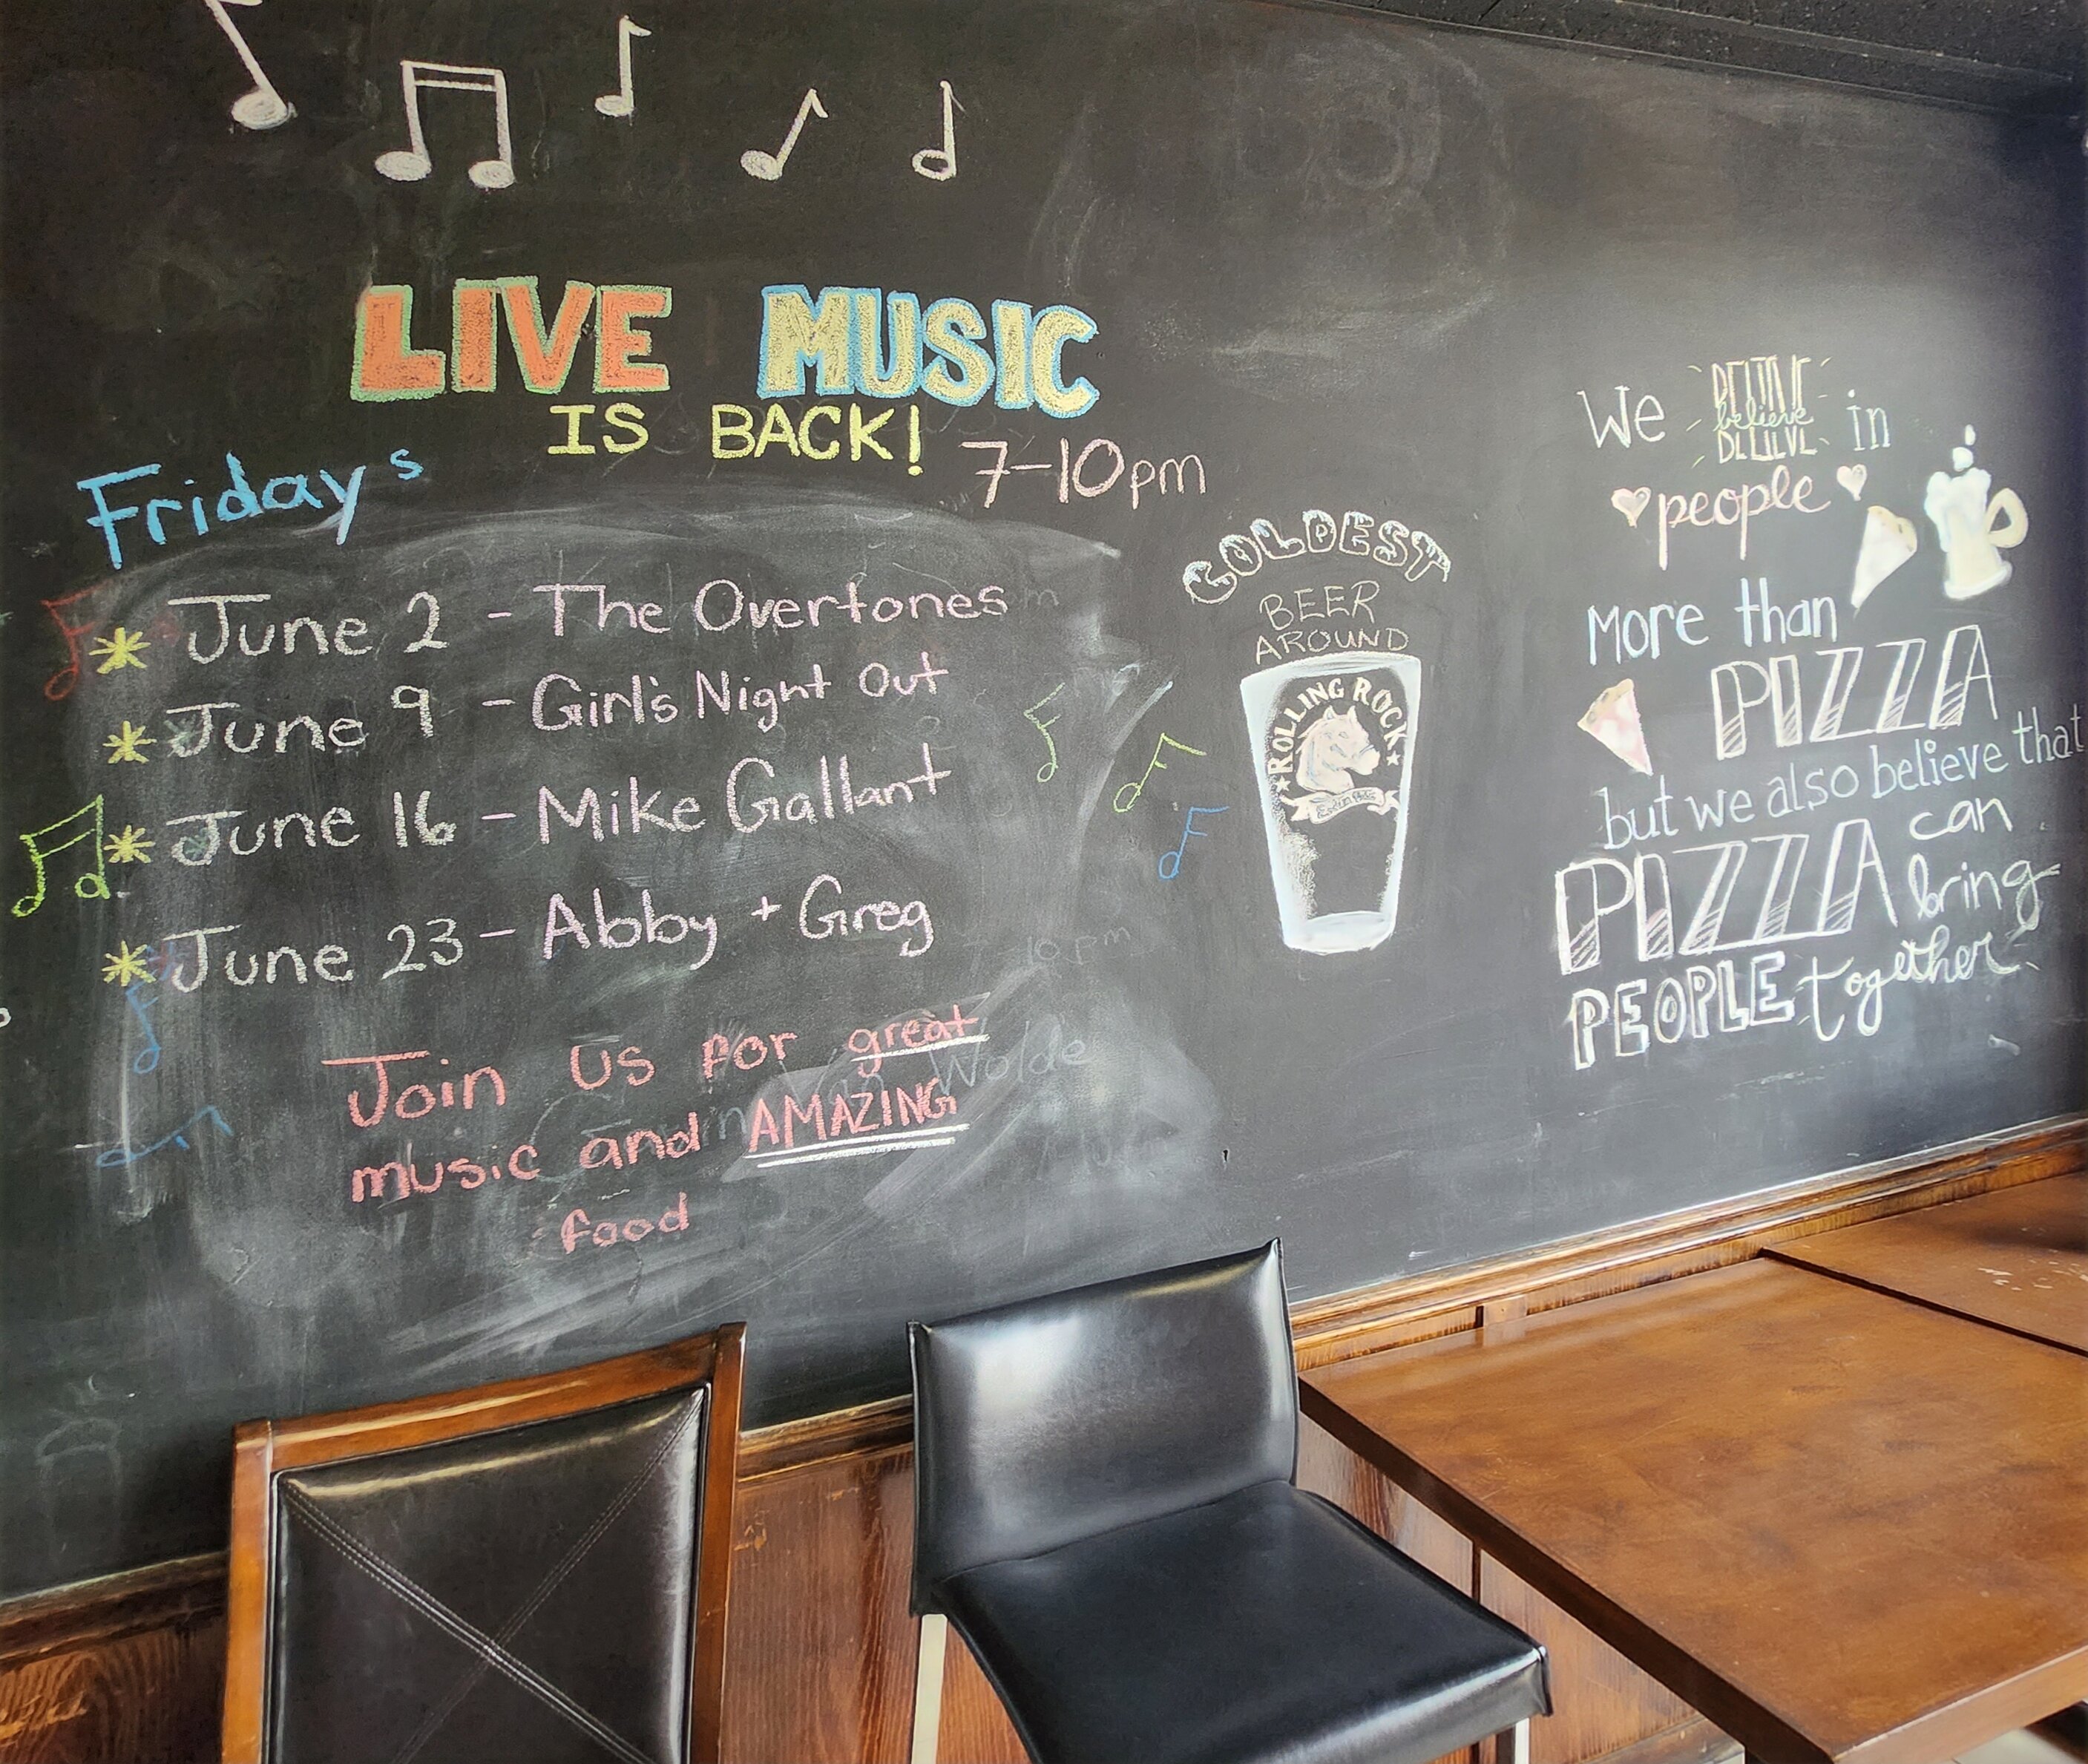 LIVE MUSIC
IS BACK!
Friday's
7-10pm
June 2 - The Overtones
June 9 - Girl's Night Out
June 16 - Mike Gallant
June 23 - Abby + Greg
Join us for great
music and AMAZING
food
COLDEST
BEER
AROUND
ROLLING ROCK
We believe in
people
More than
PIZZA
but we also believe that
PIZZA can
bring
PEOPLE together